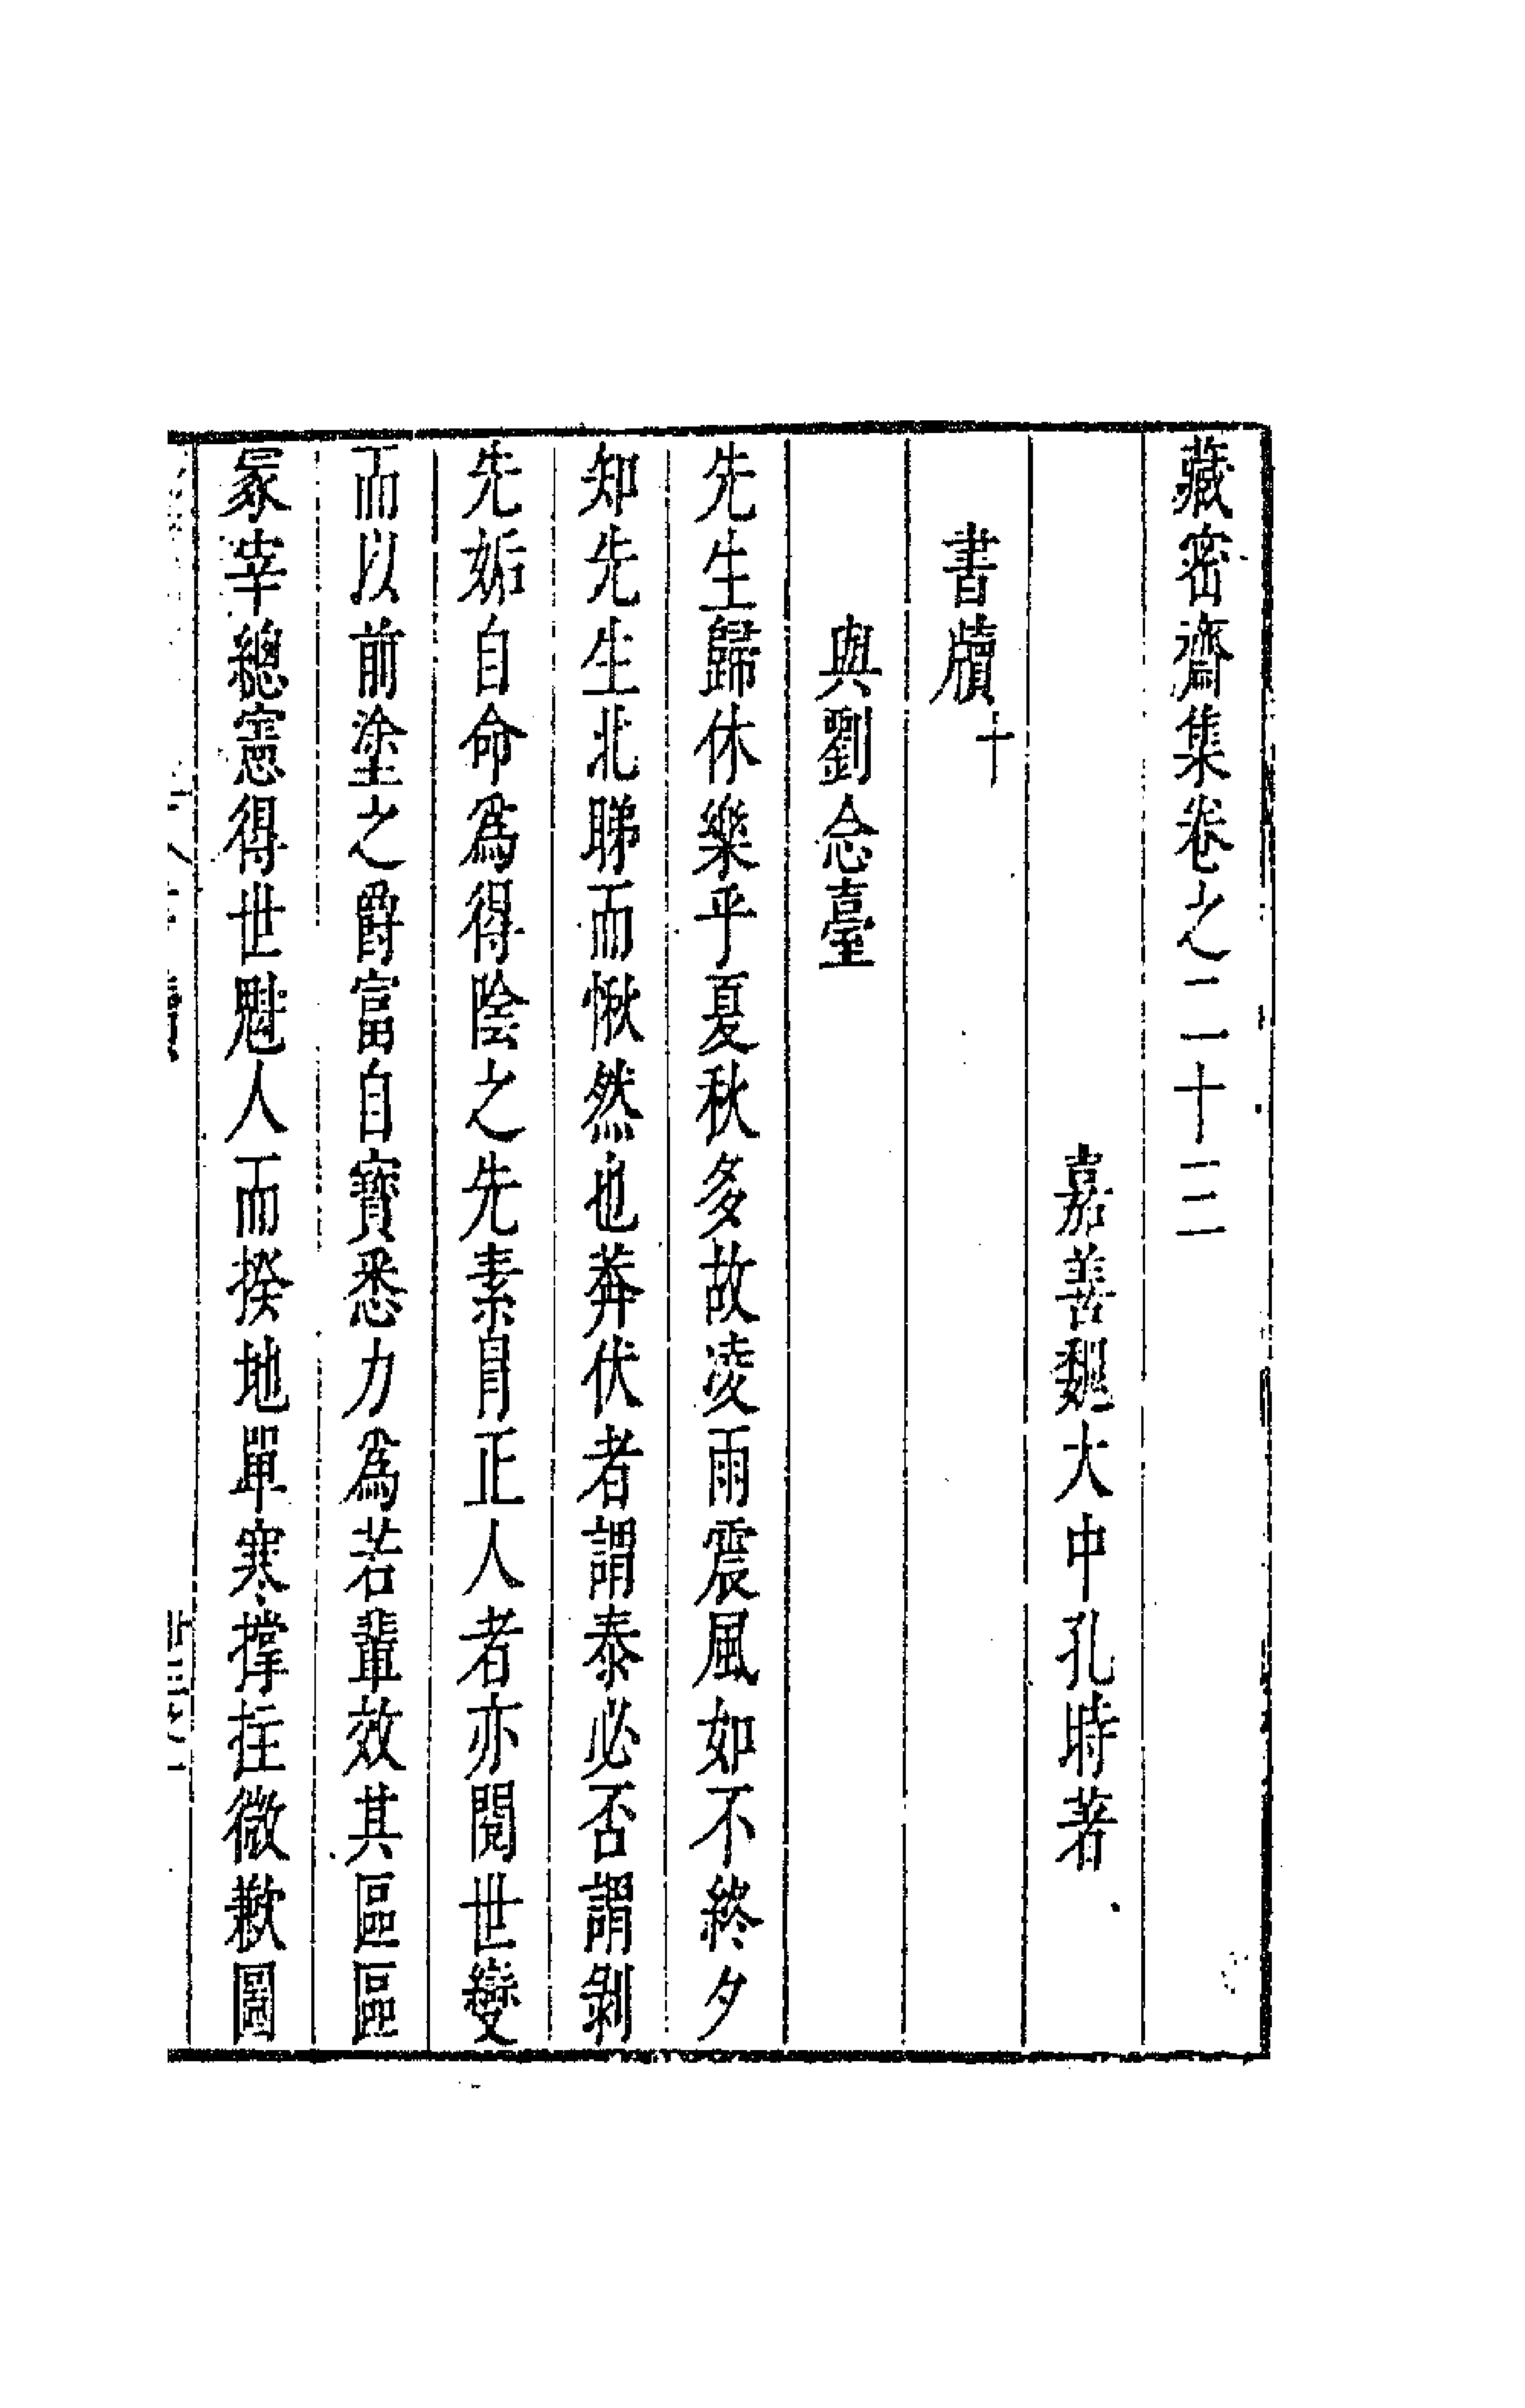 藏密齋集卷之二十三
嘉善魏大中孔時著
書牘十
與劉念臺
先生歸休樂乎夏秋多故凌雨震風如不終夕
知先生北睇而愀然也莽伏者謂泰必否謂剝
先姤自命爲得陰之先素自正人者亦閱世變
而以前塗之爵富自寶悉力爲若輩效其區區
冢宰總憲得世魁人而揆地單寒撑拄微歉圖